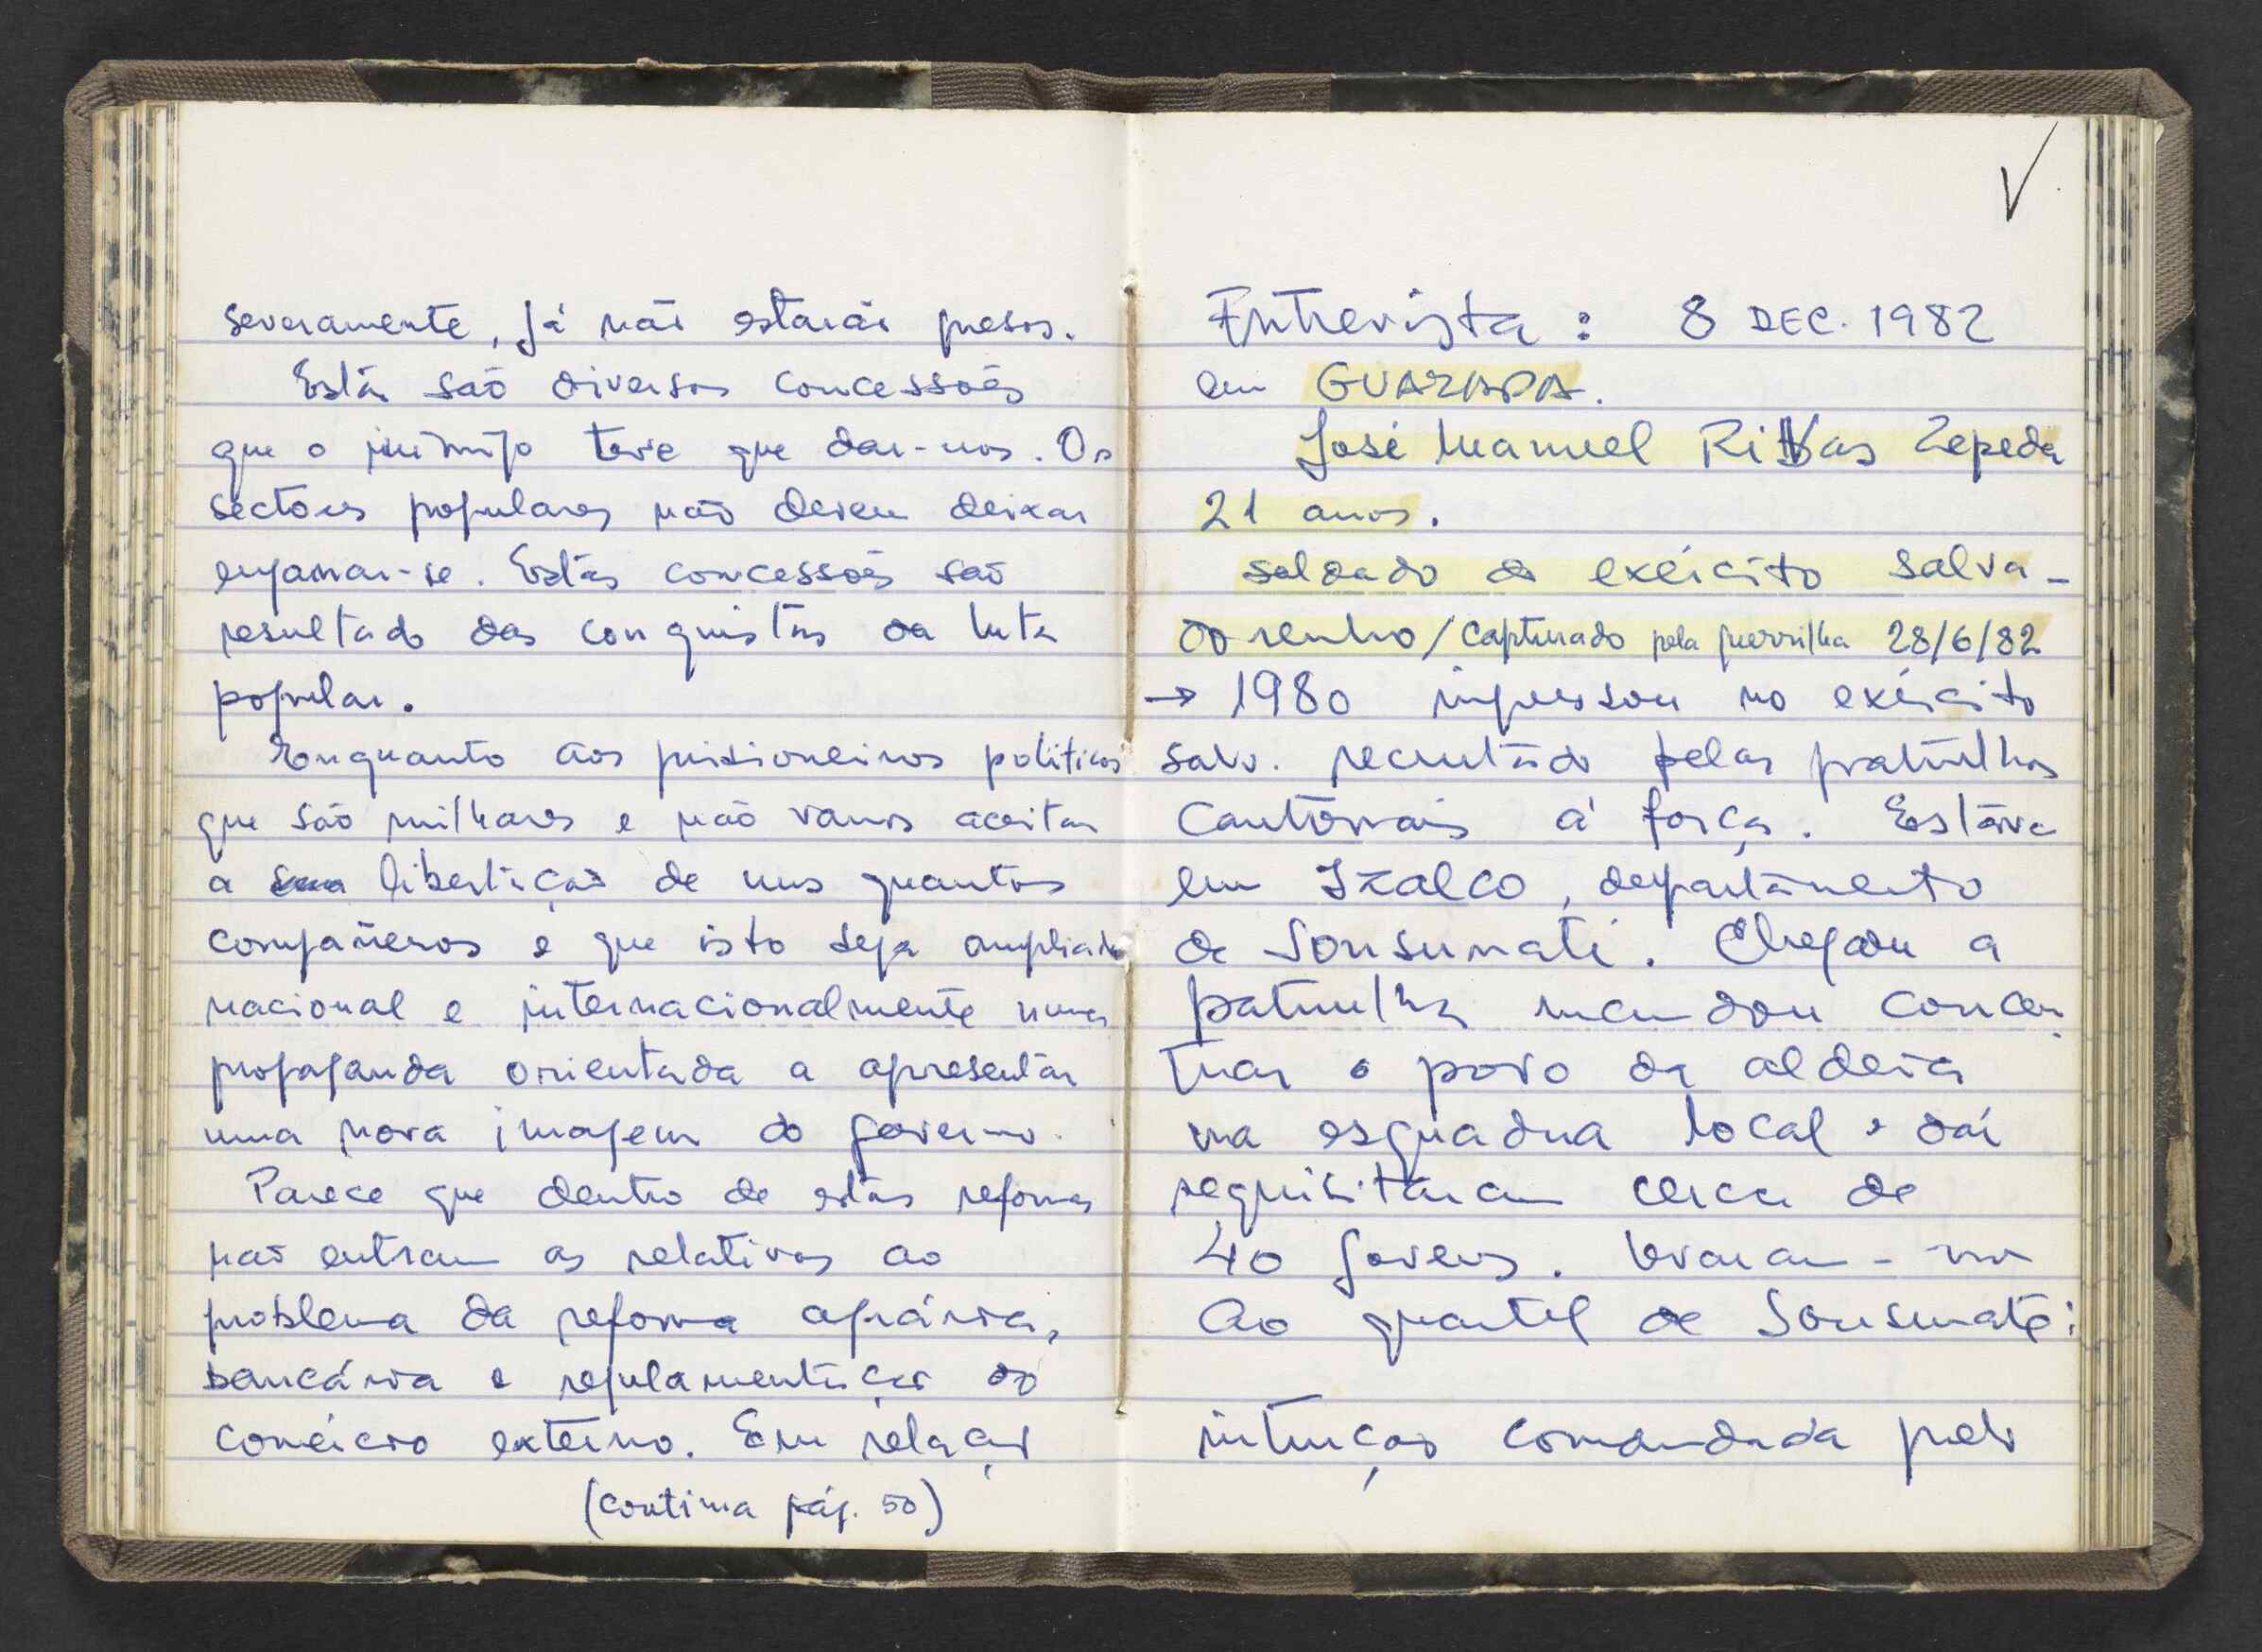 severamente, já não estarão presos.
Estás são diversos concessões
que o inimigo teve que dar-nos. Os
sectores populares não devem deixar
enganar-se. Estás concessões são
resultado das conquistas da luta
popular.
Enquanto aos prisioneiros políticos
que são milhares e não vamos aceitar
a libertação de uns quantos
compañeros e que isto seja ampliado
nacional e internacionalmente numa
propaganda orientada a apresentar
uma nova imagem do governo.
Parece que dentro de estas reformas
não entram as relativas ao
problema da reforma agrária,
bancária e regulamentação do
comércio externo. Em relação
(continua pág. 50)
√
Entrevista : 8 DEC. 1982
em GUAZAPA.
José Manuel Rivas Zepeda
21 anos.
soldado do exército salva-
dorenho/capturado pela guerrilha 28/6/82
→ 1980 ingressou no exército
salv. recrutado pelas pratulhas
cantonais á força. Estava
em Izalco, departamento
de Sonsunate. Chegou a
patrulha mandou concen
trar o povo da aldeia
na esquadra local e daí
requisitaram cerca de
40 jovens. levaram-no
ao quartel de Sonsunate:
intrução comandada pelo